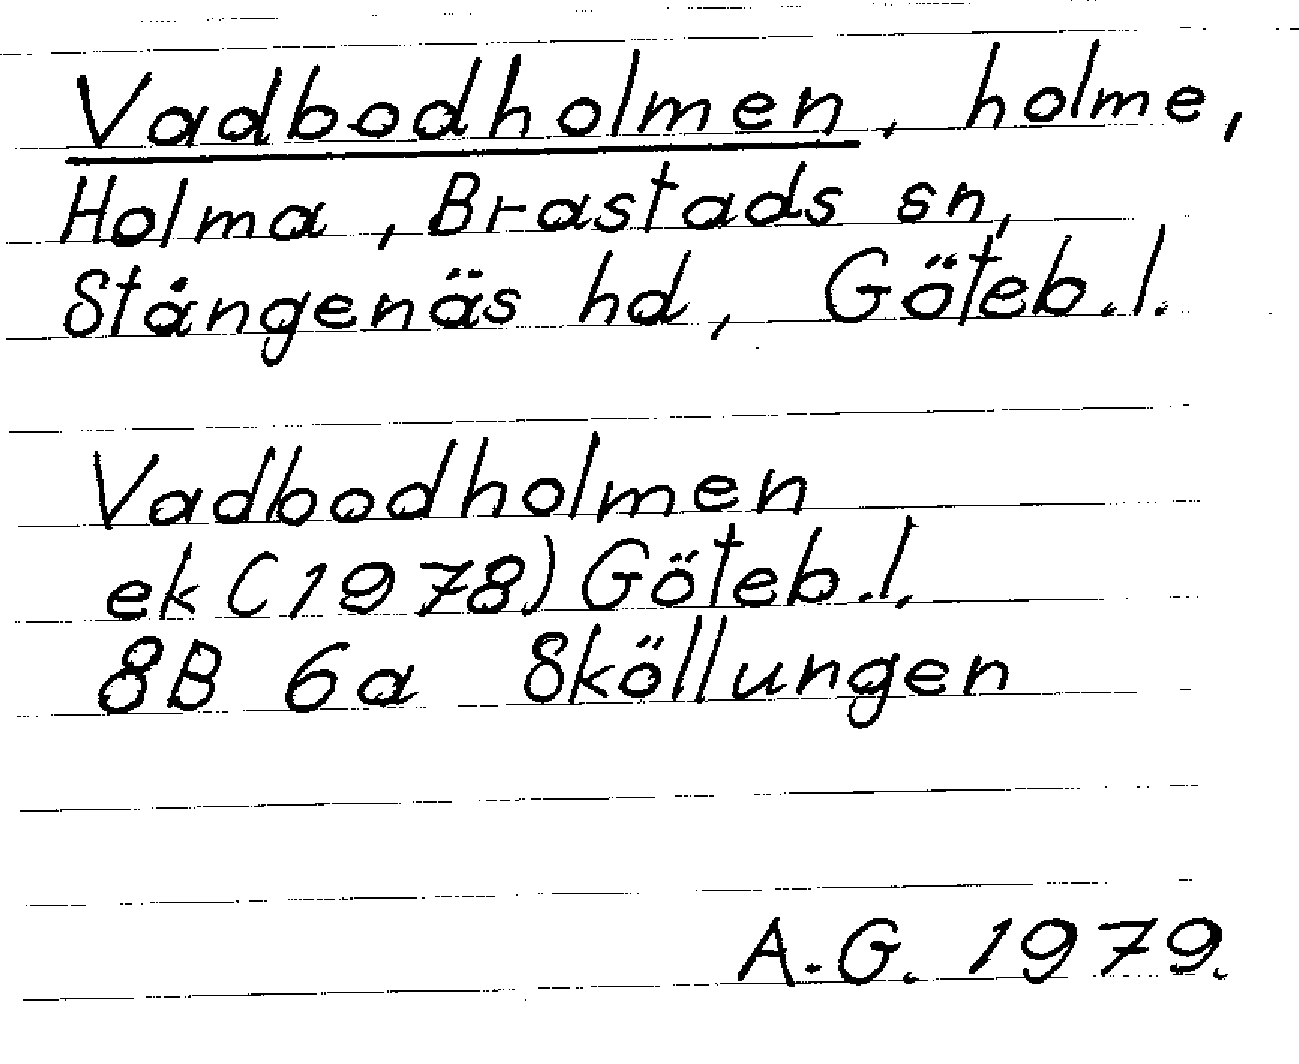 Vadbodholmen, holme,
Holma, Brastads sn,
Stångenäs hd, Göteb.l.
Vadbodholmen
ek (1978) Göteb.l.
8B 6a Sköllungen
A.G. 1979.